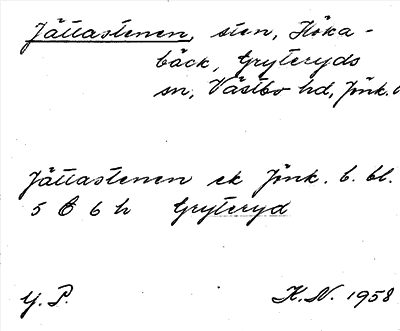 Jättastenen, sten, Höka-
bäck, Gryteryds
sn, Västbo hd, Jönk. l
Jättastenen ek Jönk. b. bl.
5 C 6 h Gryteryd
G. P. K. N. 1958